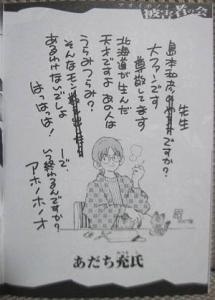 島本和彦先生ですか?
大ファンです
尊敬してます
北海道が生んだ
天才ですよあの人は
うらみつらみ?
そんなモン
あるわけないでしょ
はっはっは!
…で、
いつ終わるんですか?
アホノホノオ
あだち充氏